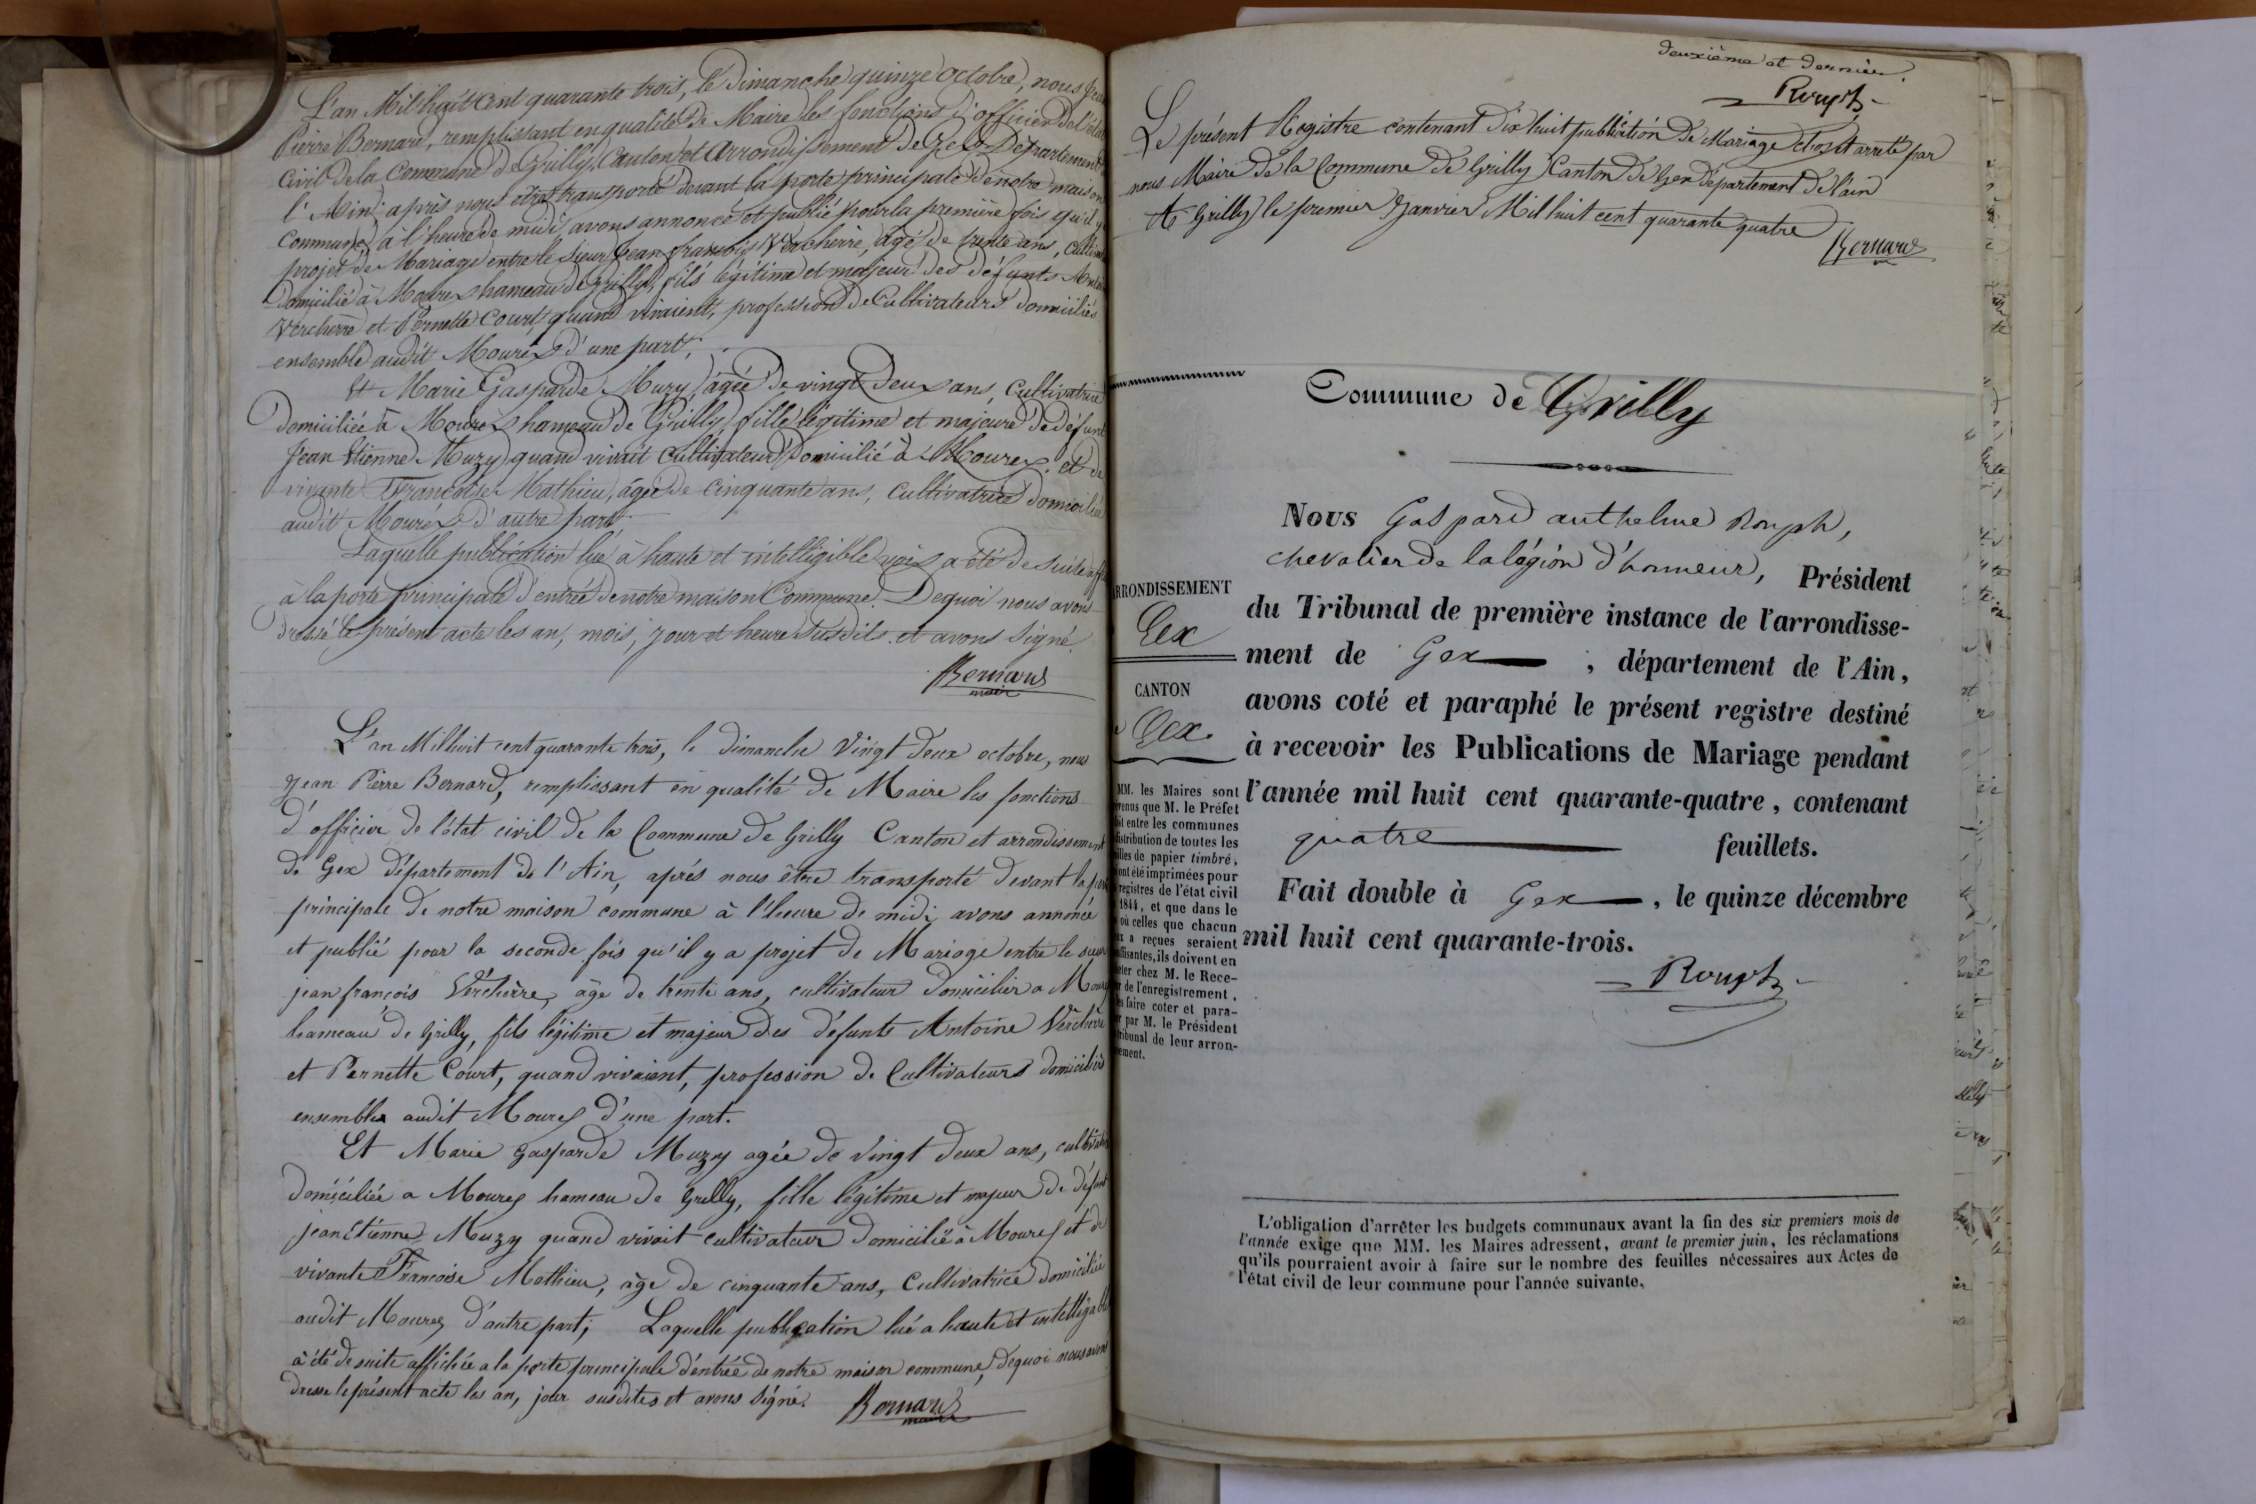 L'an Mil huit Cent quarante trois, le Dimanche quinze octobre, nous Jean
Pierre Bernard, remplissant en qualité de Maire les fonctions d'officier de l'état
Civil de la Commune de Grilly, Canton et Arrondissement de Gex Département
l'Ain; après nous être transporté devant la porte principale de notre maison
Commune à l'heure de midi avons annoncé et publié pour la première fois qu'il y
projet de Mariage entre le Sieur Jean François Verchère, âgé de trente ans,
Domicilié à Mourex hameau de Grilly, fils légitime et majeur des défunts
Verchère et Pernette Court, quand vivaient, profession de Cultivateurs domiciliés
ensemble audit Mourex d'une part;
Et Marie Gasparde Muzy, âgée de vingt deux ans, Cultivatrice
Domiciliée à Mourex hameau de Grilly, fille légitime et majeure de défunt
Jean Etienne Muzy quand vivait Cultivateur Domicilié à Mourex, et de
vivante Françoise Mathieu, âgée de cinquante ans, Cultivatrice domiciliée
audit Mourex d'autre part;
Laquelle publication lue à haute et intelligible voix a été de suite
à la porte principale d'entrée de notre maison Commune. De quoi nous avons
dressé le présent acte les an, mois, jour et heure susdits et avons signé
Bernard
maire
L'an Mil huit cent quarante trois, le dimanche Vingt deux octobre, nous
Jean Pierre Bernard, remplissant en qualité de Maire les fonctions
d'officier de l'état civil de la Commune de Grilly Canton et arrondissement
de Gex département de l'Ain, après nous être transporté devant la
principale de notre maison commune à l'heure de midi avons annoncé
et publié pour la seconde fois qu'il y a projet de Mariage entre le sieur
jean françois Verchère, âge de trente ans, cultivateur Domicilier a
hameau de Grilly, fils légitime et majeur des défunts Antoine Verchère
et Pernette Court, quand vivaient, profession de Cultivateurs domiciliés
ensembles audit Mourex d'une part.
Et Marie Gasparde Muzy agée de Vingt deux ans,
domiciliée a Mourex hameau de Grilly, fille légitime et majeur de défunt
jean Etienne Muzy quand vivait cultivateur Domicilié à Mourex et de
vivante Françoise Mathieu, âge de cinquante ans, Cultivatrice domiciliée
audit Mourex d'autre part; Laquelle publication lué a haute et intelligible
à été de suite affichée a la porte principale d'entrée de notre maison commune, Dequoi nous avons
dresse le présent acte les an, jour susdites et avons signé.
Bernard
maire
deuxième et dernier.
Rouph
Le présent Registre contenant Dix huit publication de Mariage clos et arreté par
nous Maire de la Commune de Grilly Canton de Gex département de l'ain
A Grilly le premier Janvier Mil huit cent quarante quatre
Bernard
Commune de Grilly
Nous Gaspard anthelme Rouph,
chevalier de la légion d'honneur, Président
du Tribunal de première instance de l'arrondisse-
ment de Gex , département de l'Ain,
avons coté et paraphé le présent registre destiné
à recevoir les Publications de Mariage pendant
l'année mil huit cent quarante-quatre, contenant
quatre feuillets.
Fait double à Gex , le quinze décembre
mil huit cent quarante-trois.
Rouph
RRONDISSEMENT
Gex
CANTON
Gex.
MM. les Maires sont
venus que M. le Préfet
it entre les communes
istribution de toutes les
lles de papier timbré,
ont été imprimées pour
registres de l'état civil
1844, et que dans le
où celles que chacun
x a reçues seraient
ffisantes, ils doivent en
eter chez M. le Rece-
r de l'enregistrement,
s faire coter et para-
r par M. le Président
ribunal de leur arron-
ement.
L'obligation d'arrêter les budgets communaux avant la fin des six premiers mois de
l'année exige que MM. les Maires adressent, avant le premier juin, les réclamations
qu'ils pourraient avoir à faire sur le nombre des feuilles nécessaires aux Actes de
l'état civil de leur commune pour l'année suivante.